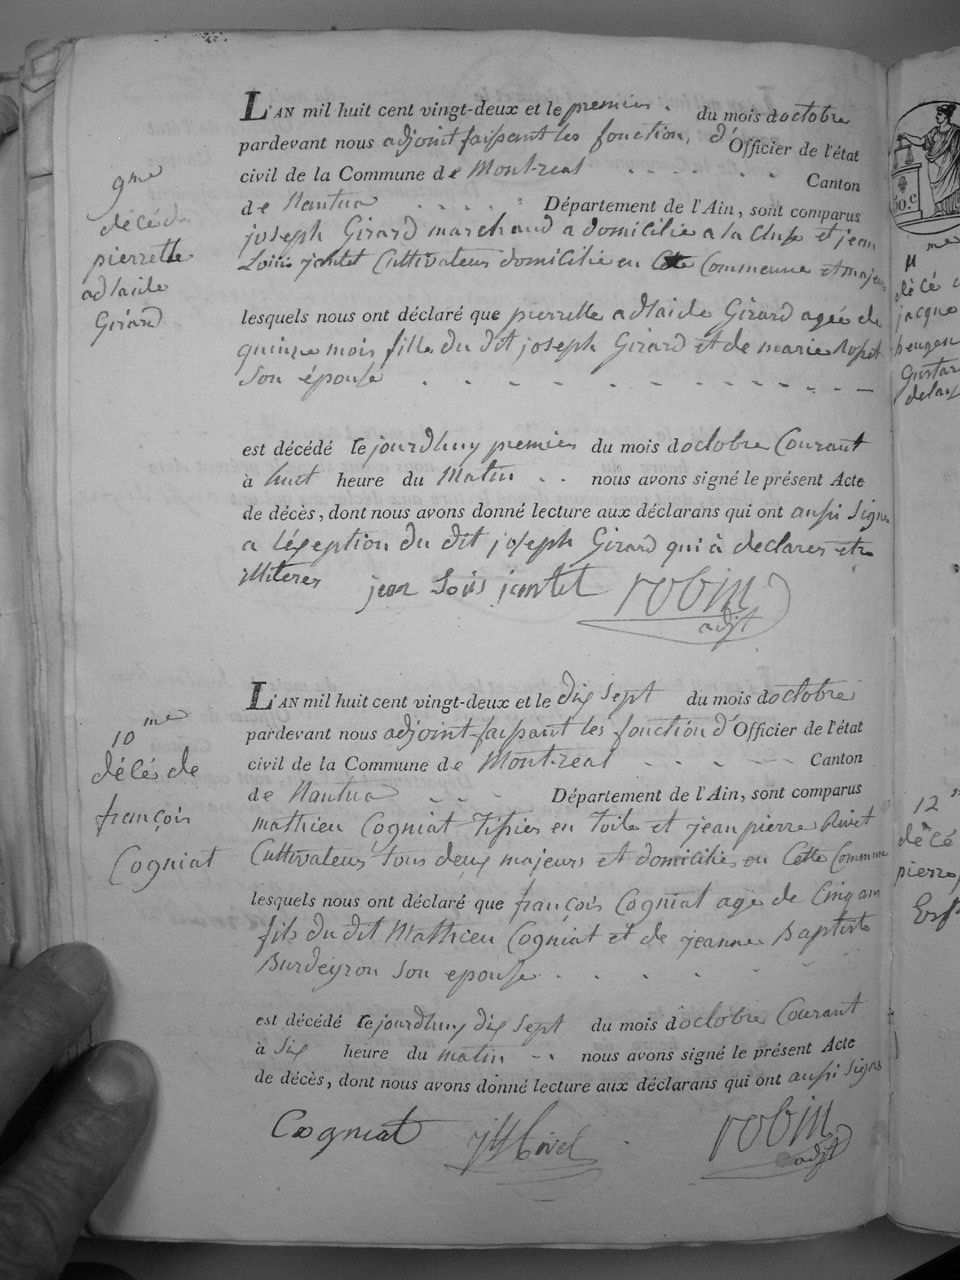 L'AN mil huit cent vingt-deux et le premier . du mois doctobre
pardevant nous adjoint faissant les fonction, d'Officier de l'état
civil de la Commune de Montreal . . . . . . . Canton
de Nantua . . . . . Département de l'Ain, sont comparus
joseph Girard marchand a domicilie a la Cluse et jean
Loüis jantet Cultivateur domicilie en Cette Commeune et majeur
lesquels nous ont déclaré que pierrette adlaide Girard agée de
quinze mois fille du dit joseph Girard et de marie
Son épouse . . . . . . . . . . . .
est décédé le jourdhuy premier du mois doctobre Courant
à huit heure du Matin . . nous avons signé le présent Acte
de décès, dont nous avons donné lecture aux déclarans qui ont aussi Signe
a léxeption du dit joseph Girard qui à declarer etre
illiteres jean Loüis jantet robin
adjt
9me
décé de
pierrette
adlaide
Girard
L'AN mil huit cent vingt-deux et le dix sept du mois doctobre
pardevant nous adjoint faissant les fonction d'Officier de l'état
civil de la Commune de Montreal . . . . . . Canton
de Nantua . . . Département de l'Ain, sont comparus
mathieu Cogniat Tissier en toile et jean pierre Rivet
Cultivateur tous deux majeurs et domicilie en Cette Commune
lesquels nous ont déclaré que françois Cogniat age de Cinq ans
fils du dit Mathieu Cogniat et de jeanne Baptiste
Burdeyron Son epouse . . . . . .
est décédé le jourdhuy dix sept du mois doctobre Courant
à Six heure du matin - . nous avons signé le présent Acte
de décès, dont nous avons donné lecture aux déclarans qui ont aussi Signes
Cogniat robin
adjt
10me
décés de
françois
Cogniat
50.c
11me
décé
jacque
12
décé
pierre